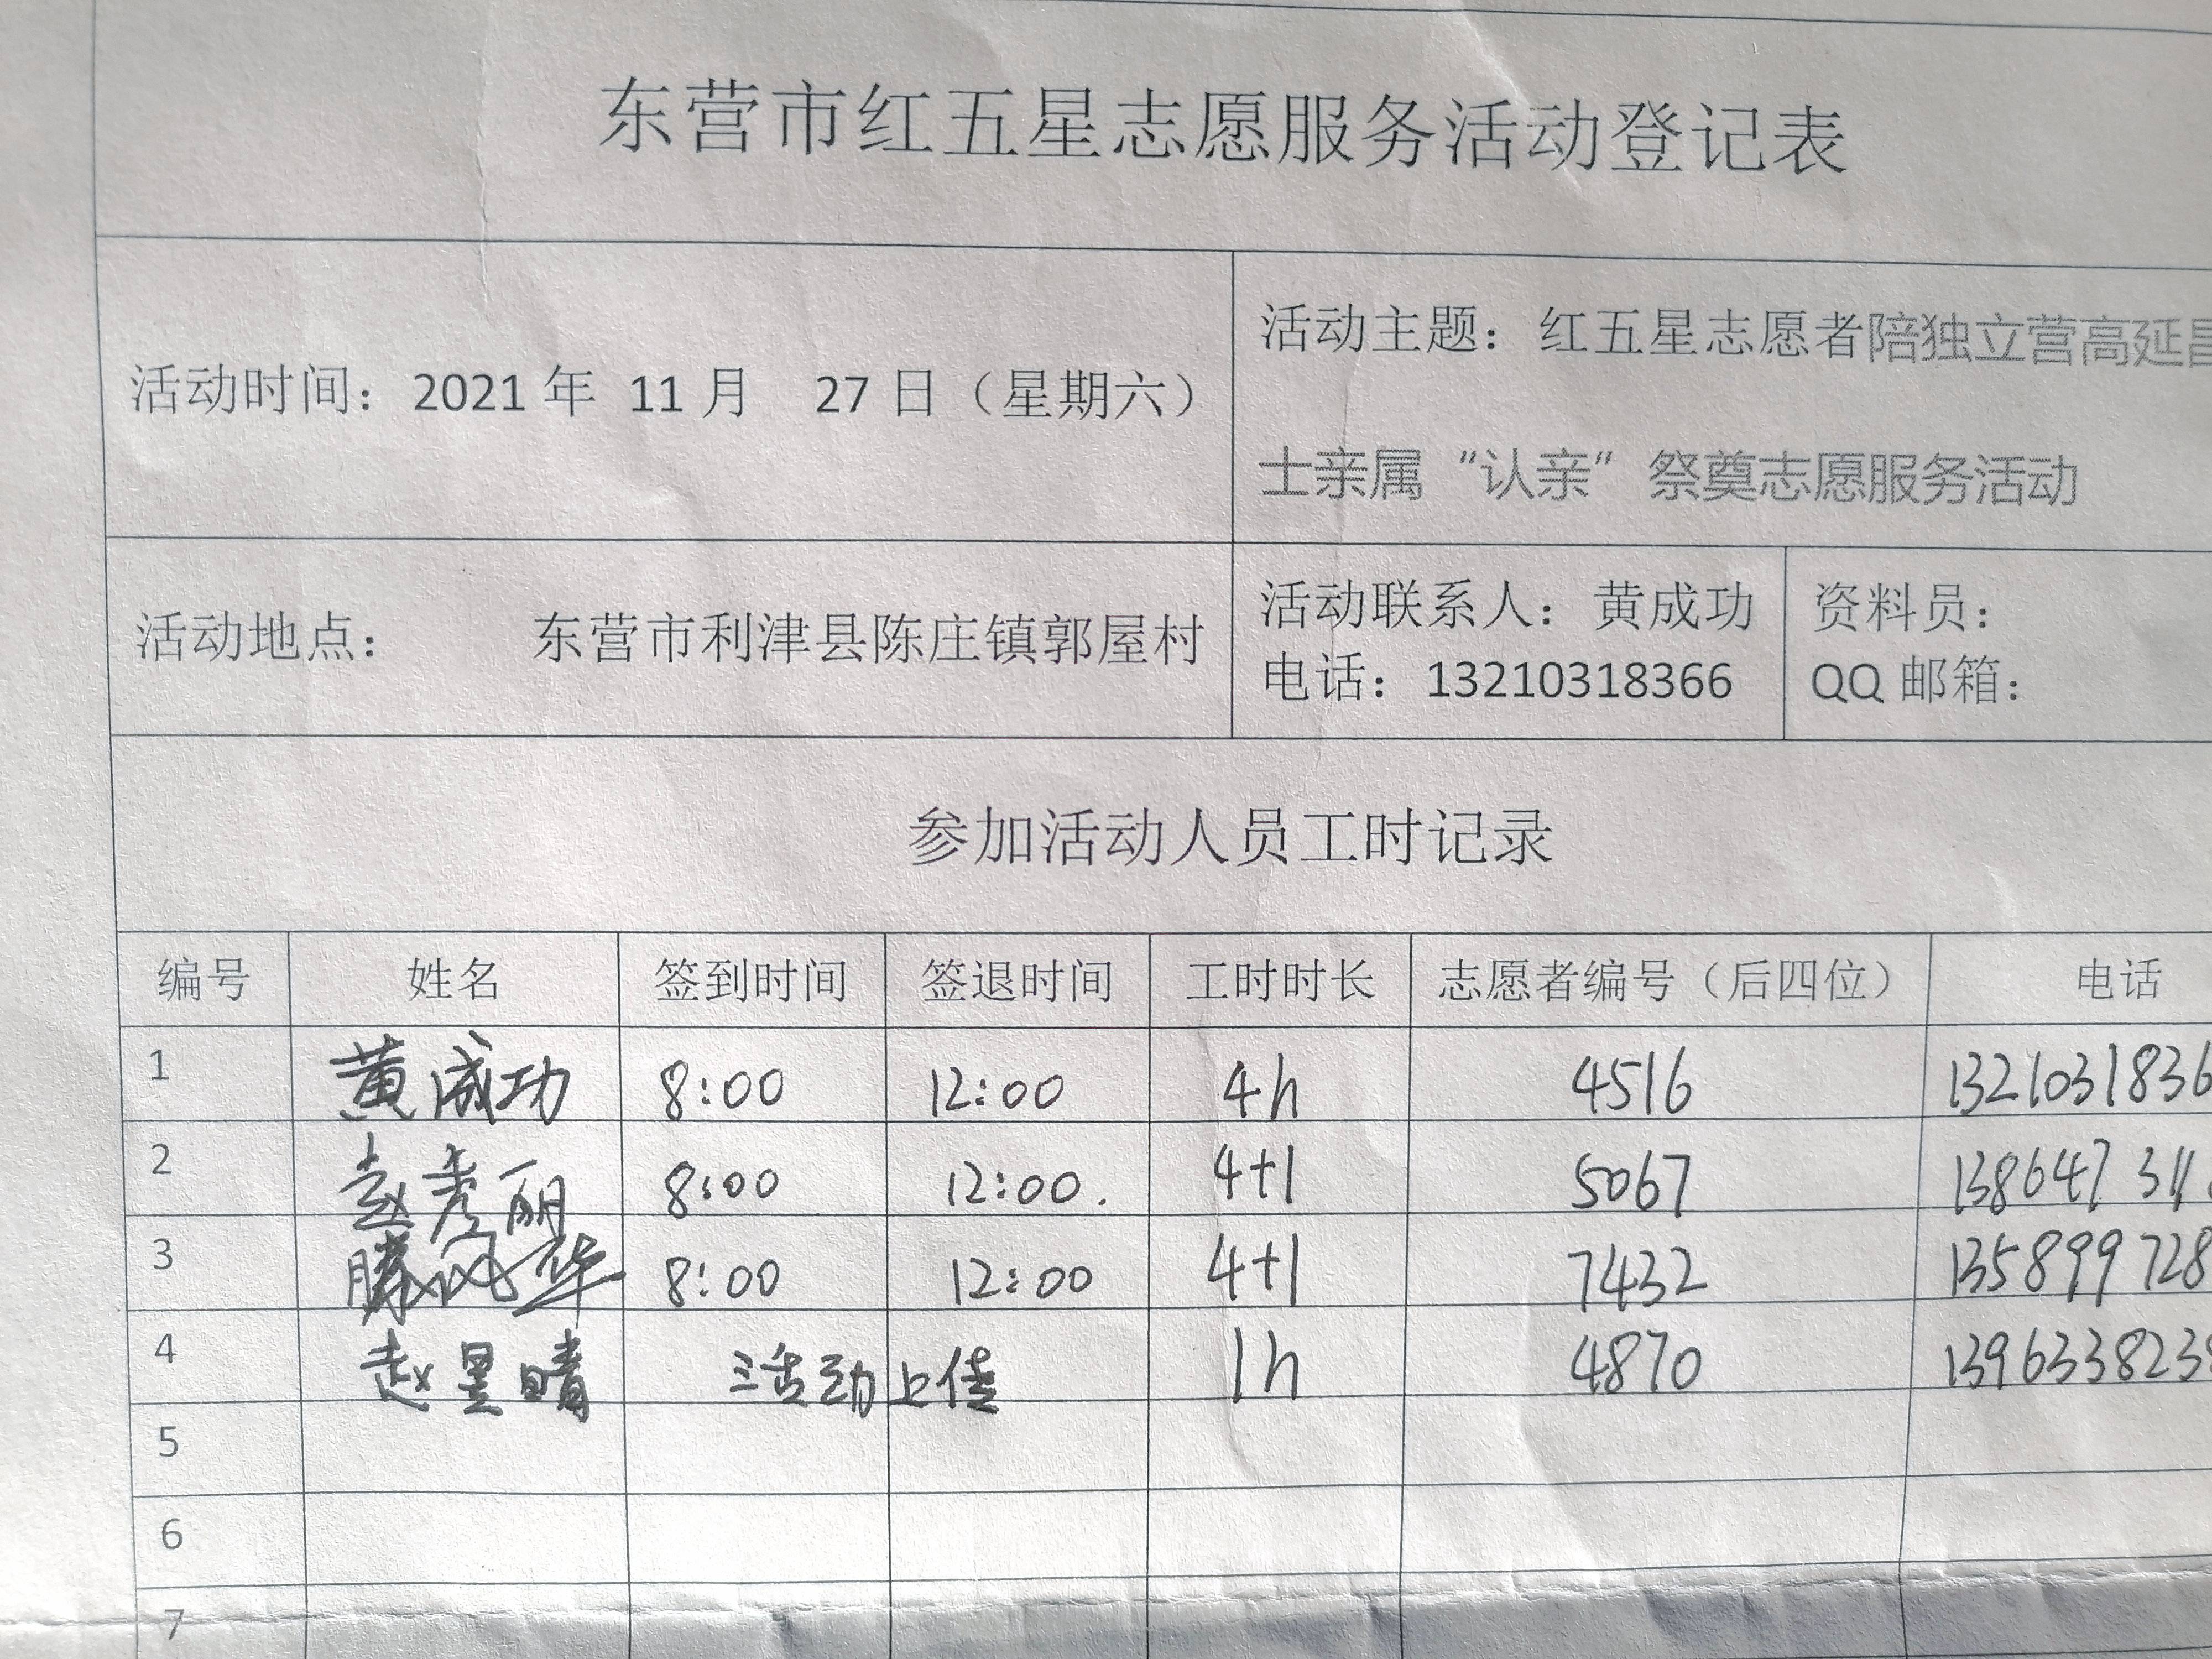 东营市红五星志愿服务活动登记表
活动时间：2021 年 11 月 27 日（星期六）
活动主题：红五星志愿者陪独立营高延昌
士亲属“认亲”祭奠志愿服务活动
活动地点： 东营市利津县陈庄镇郭屋村
活动联系人：黄成功
电话：13210318366
资料员：
QQ 邮箱：
参加活动人员工时记录
编号 姓名 签到时间 签退时间 工时时长 志愿者编号（后四位） 电话
1 黄成功 8:00 12:00 4h 4516 1321031836
2 赵秀丽 8:00 12:00. 4+1 5067 138647 311
3 滕风华 8:00 12:00 4+1 7432 135899 728
4 赵昱晴 三活动上传 1h 4870 1396338238
5
6
7